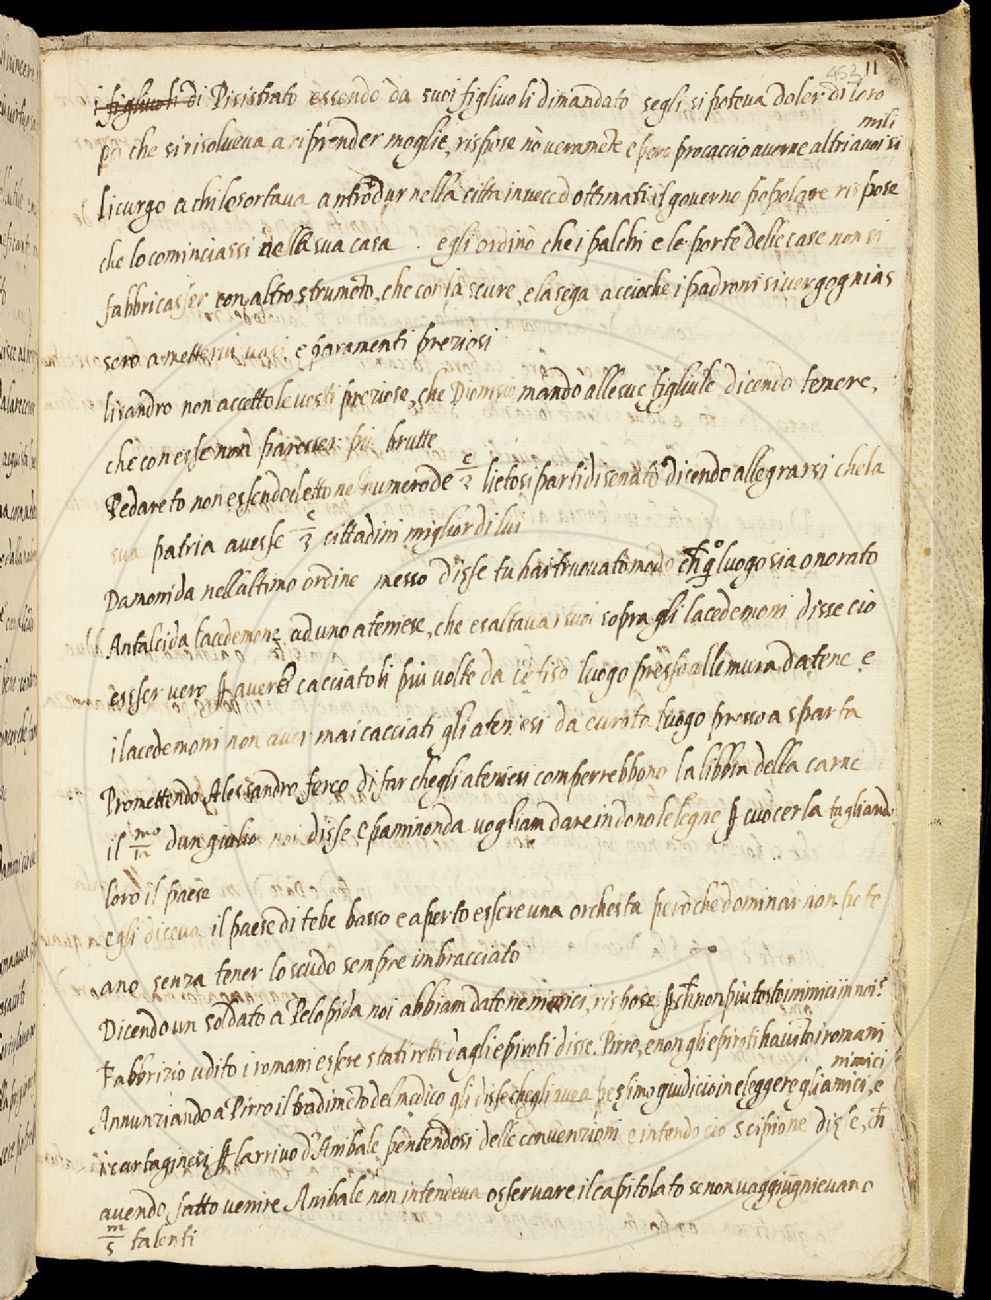 452 11
i figliuoli di Pisistrato essendo da suoi figliuoli dimandato segli si poteva doler di loro
poi che si risolveva a riprender moglie, rispose nò veramēte e però procaccio averne altri a voi si
mili
licurgo a chi lo sortava a ntrōdur nella citta in vece d ottimati il governo popolare rispose
che lo cominciassi nella sua casa . egli ordinò che i palchi e le porte delle case non si
fabbricasser con altro strumēto, che con la scure, e la sega accioche i padroni si vergognias
sero a metterivi vasi e paramenti preziosi
lisandro non accetto le vesti preziose, che Dionisio mando alle sue figliuole dicendo temere,
che con esse non paresser più brutte
Pedareto non essendo eletto nel numero de c/3 lieto si parti di senato dicendo allegrarsi che la
sua patria avesse c/3 cittadini miglior di lui
Damonida nell altimo ordine messo disse tu hai truovato modo ch q.º luogo sia onorato
Antalcida lacedemone ad uno ateniese, che esaltava i suoi sopra gli lacedemoni disse cio
essser vero averci cacciatoli più volte da cefiso luogo presso alle mura d atene e
i lacedemoni non aver mai cacciati gli ateniesi da eurota luogo presso a sparta
Promettendo Alessandro fereo di far che gli ateniesi comperrebbono la libbra della carne
il mo/12 d un giulio noi disse Epaminonda vogliam dare in dono le legne p cuocerla tagliando
loro il paese
egli diceva il paese di tebe basso e aperto essere una orchesta però che dominar non pote
ano senza tener lo scudo sempre imbracciato
Dicendo un soldato a Pelopida noi abbiam dato ne nimici, rispose p ch non più tosto i nimici in noi?
Fabbrizio udito i romani essere stati rotti dagli epiroti disse. Pirro, e non gli epiroti ha vinto i romani
Annunziando a Pirro il tradimēto del medico gli disse che gli avea pessimo giudicio in eleggere gli amici, e
nimici
i cartaginesi p l arrivo d Anibale pentendosi delle convenzioni e intendo cio Scipione disse, ch
avendo fatto venire Anibale non intendeva osservare il capitolato se non v aggiugnievano
m/5 talenti